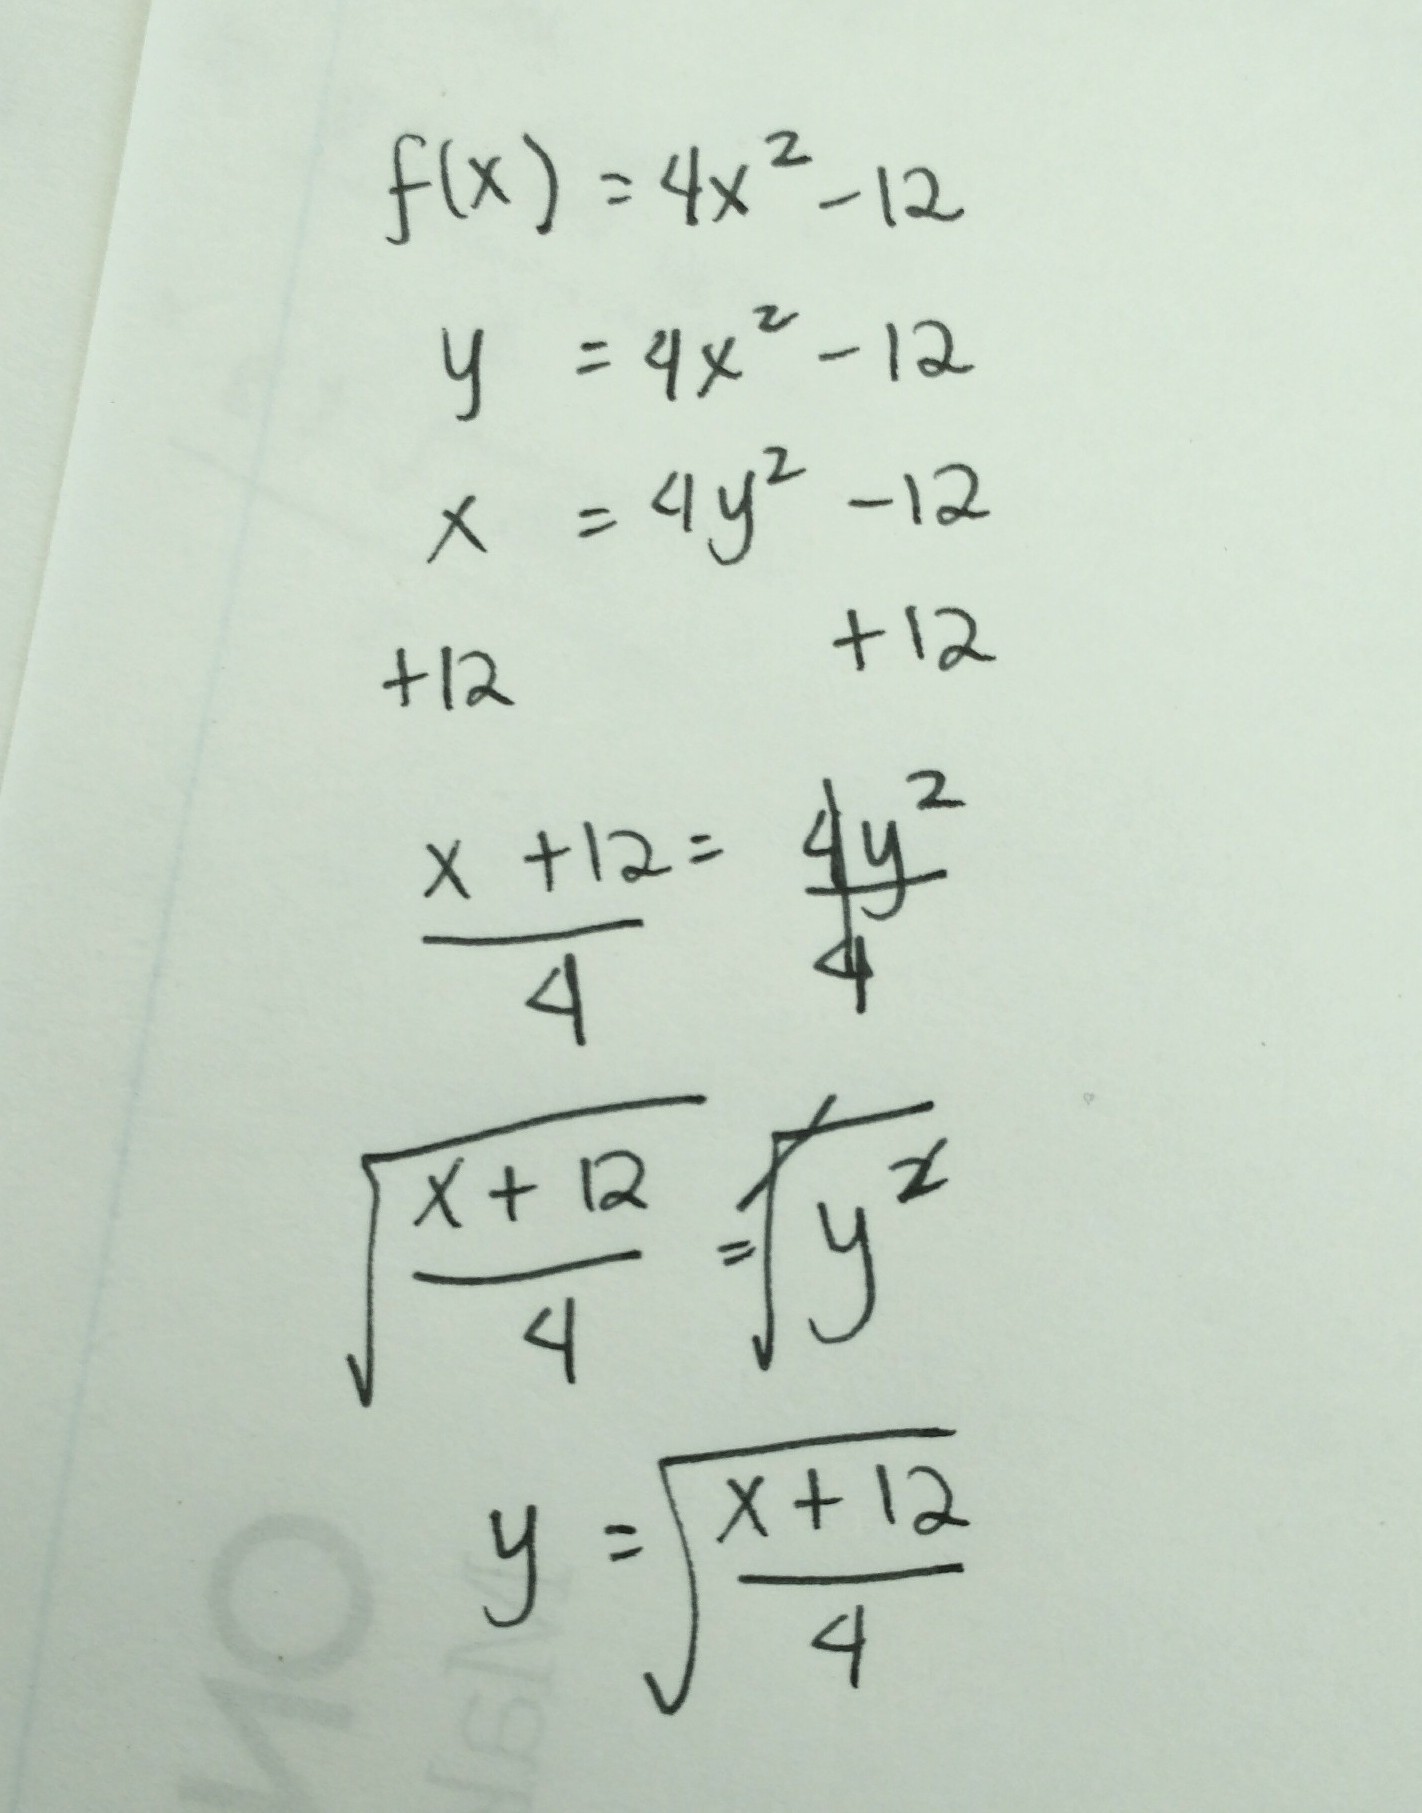 f(x) = 4x² - 12
y = 4x² - 12
x = 4y² - 12
+12 +12
x + 12 = 4y²
4 4
√(x + 12 / 4) = √y²
y = √(x + 12 / 4)